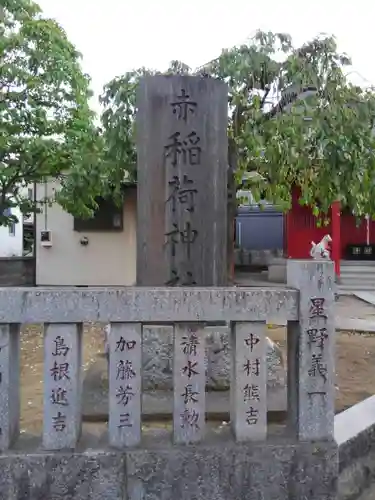 赤稲荷神社
星野義一
中村熊吉
清水長勲
加藤三
島根進吉